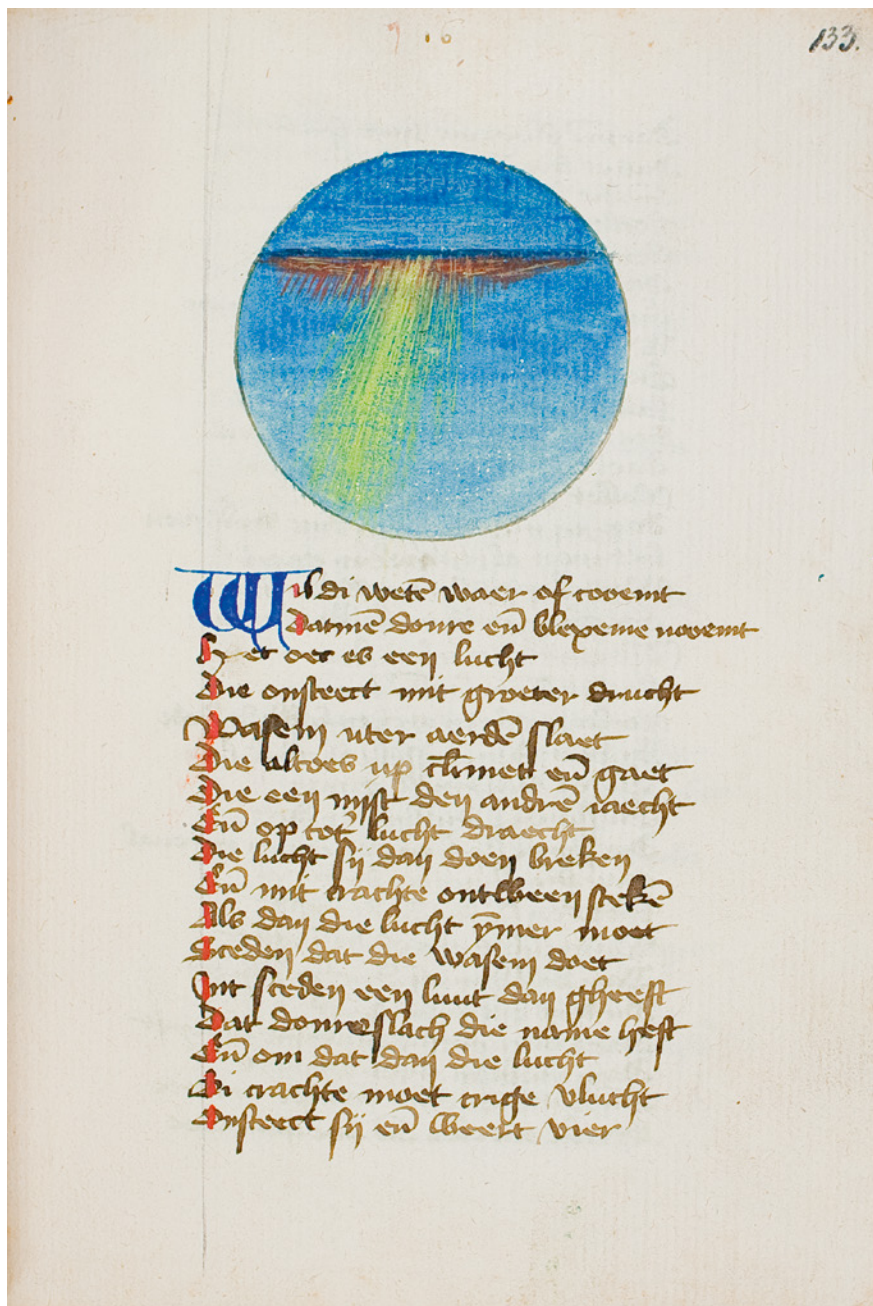 133.
Wil di wetē waer of coomt
Datmē donre eñ blexeme noomt
Het oec es een lucht
Die onsteect mit groeter drucht
Wasem uter aerdē slaet
Die altoes up eñ gaet
Die een mist den andrē iaecht
Eñ op lucht draecht
Die lucht sij dan doen breken
Eñ mit crachte ontween stekē
Als dan die lucht ȳmer moet
Sceden dat die wasem doet
Int sceden een luut dan gheeft
Dat donreslach die name heft
Eñ om dat dan die lucht
Bi crachte moet crige vlucht
Onsteect sij eñ weert vier